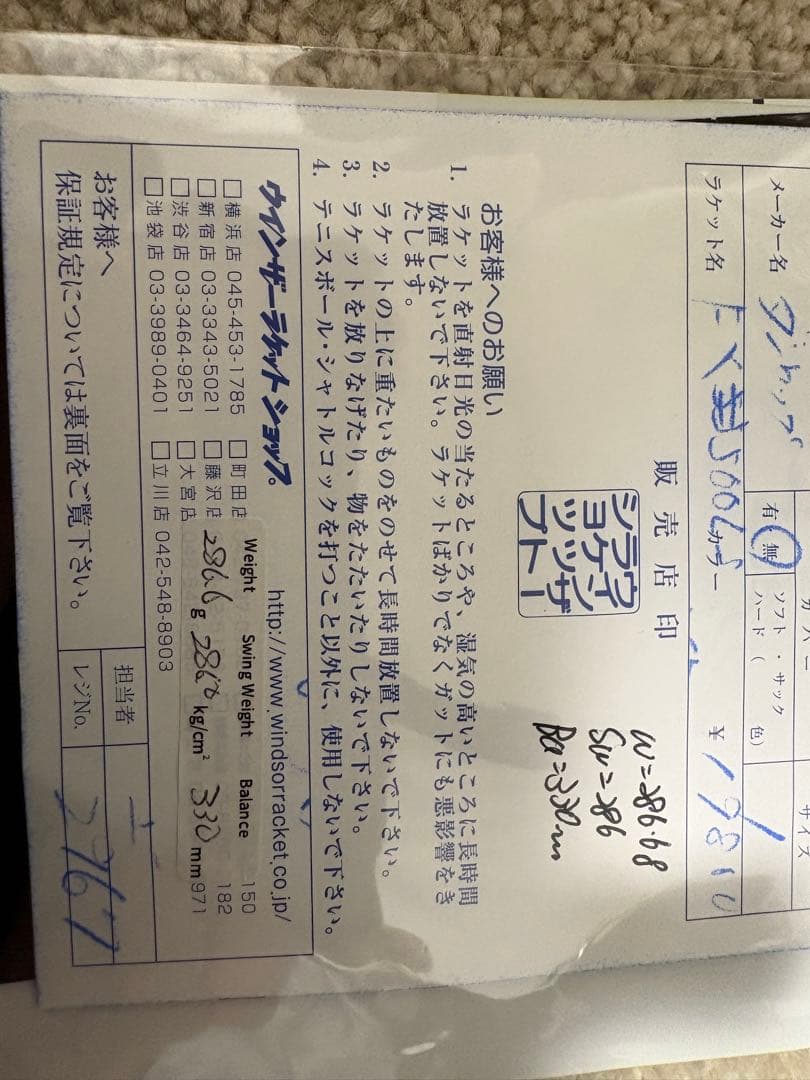 メーカー名 ダンロップ
カバー
有 無
ソフト・サック
ハード( 色)
サイズ
ラケット名
500
カラー
¥ 19810
販売店印
ウインザー
ラケット
ショップ
W=286.6g
SW=286
Ba=330m
お客様へのお願い
1. ラケットを直射日光の当たるところや、湿気の高いところに長時間
放置しないで下さい。ラケットばかりでなくガットにも悪影響をき
たします。
2. ラケットの上に重たいものをのせて長時間放置しないで下さい。
3. ラケットを放りなげたり、物をたたいたりしないで下さい。
4. テニスボール・シャトルコックを打つこと以外に、使用しないで下さい。
ウインザーラケットショップ http://www.windsorracket.co.jp/
□横浜店 045-453-1785 □町田店 150
□新宿店 03-3343-5021 □藤沢店 182
□渋谷店 03-3464-9251 □大宮店 971
□池袋店 03-3989-0401 □立川店 042-548-8903
Weight Swing Weight Balance
286.6 g 286.0 kg/cm² 330 mm
お客様へ
保証規定については裏面をご覧下さい。
担当者
レジNo. 2767